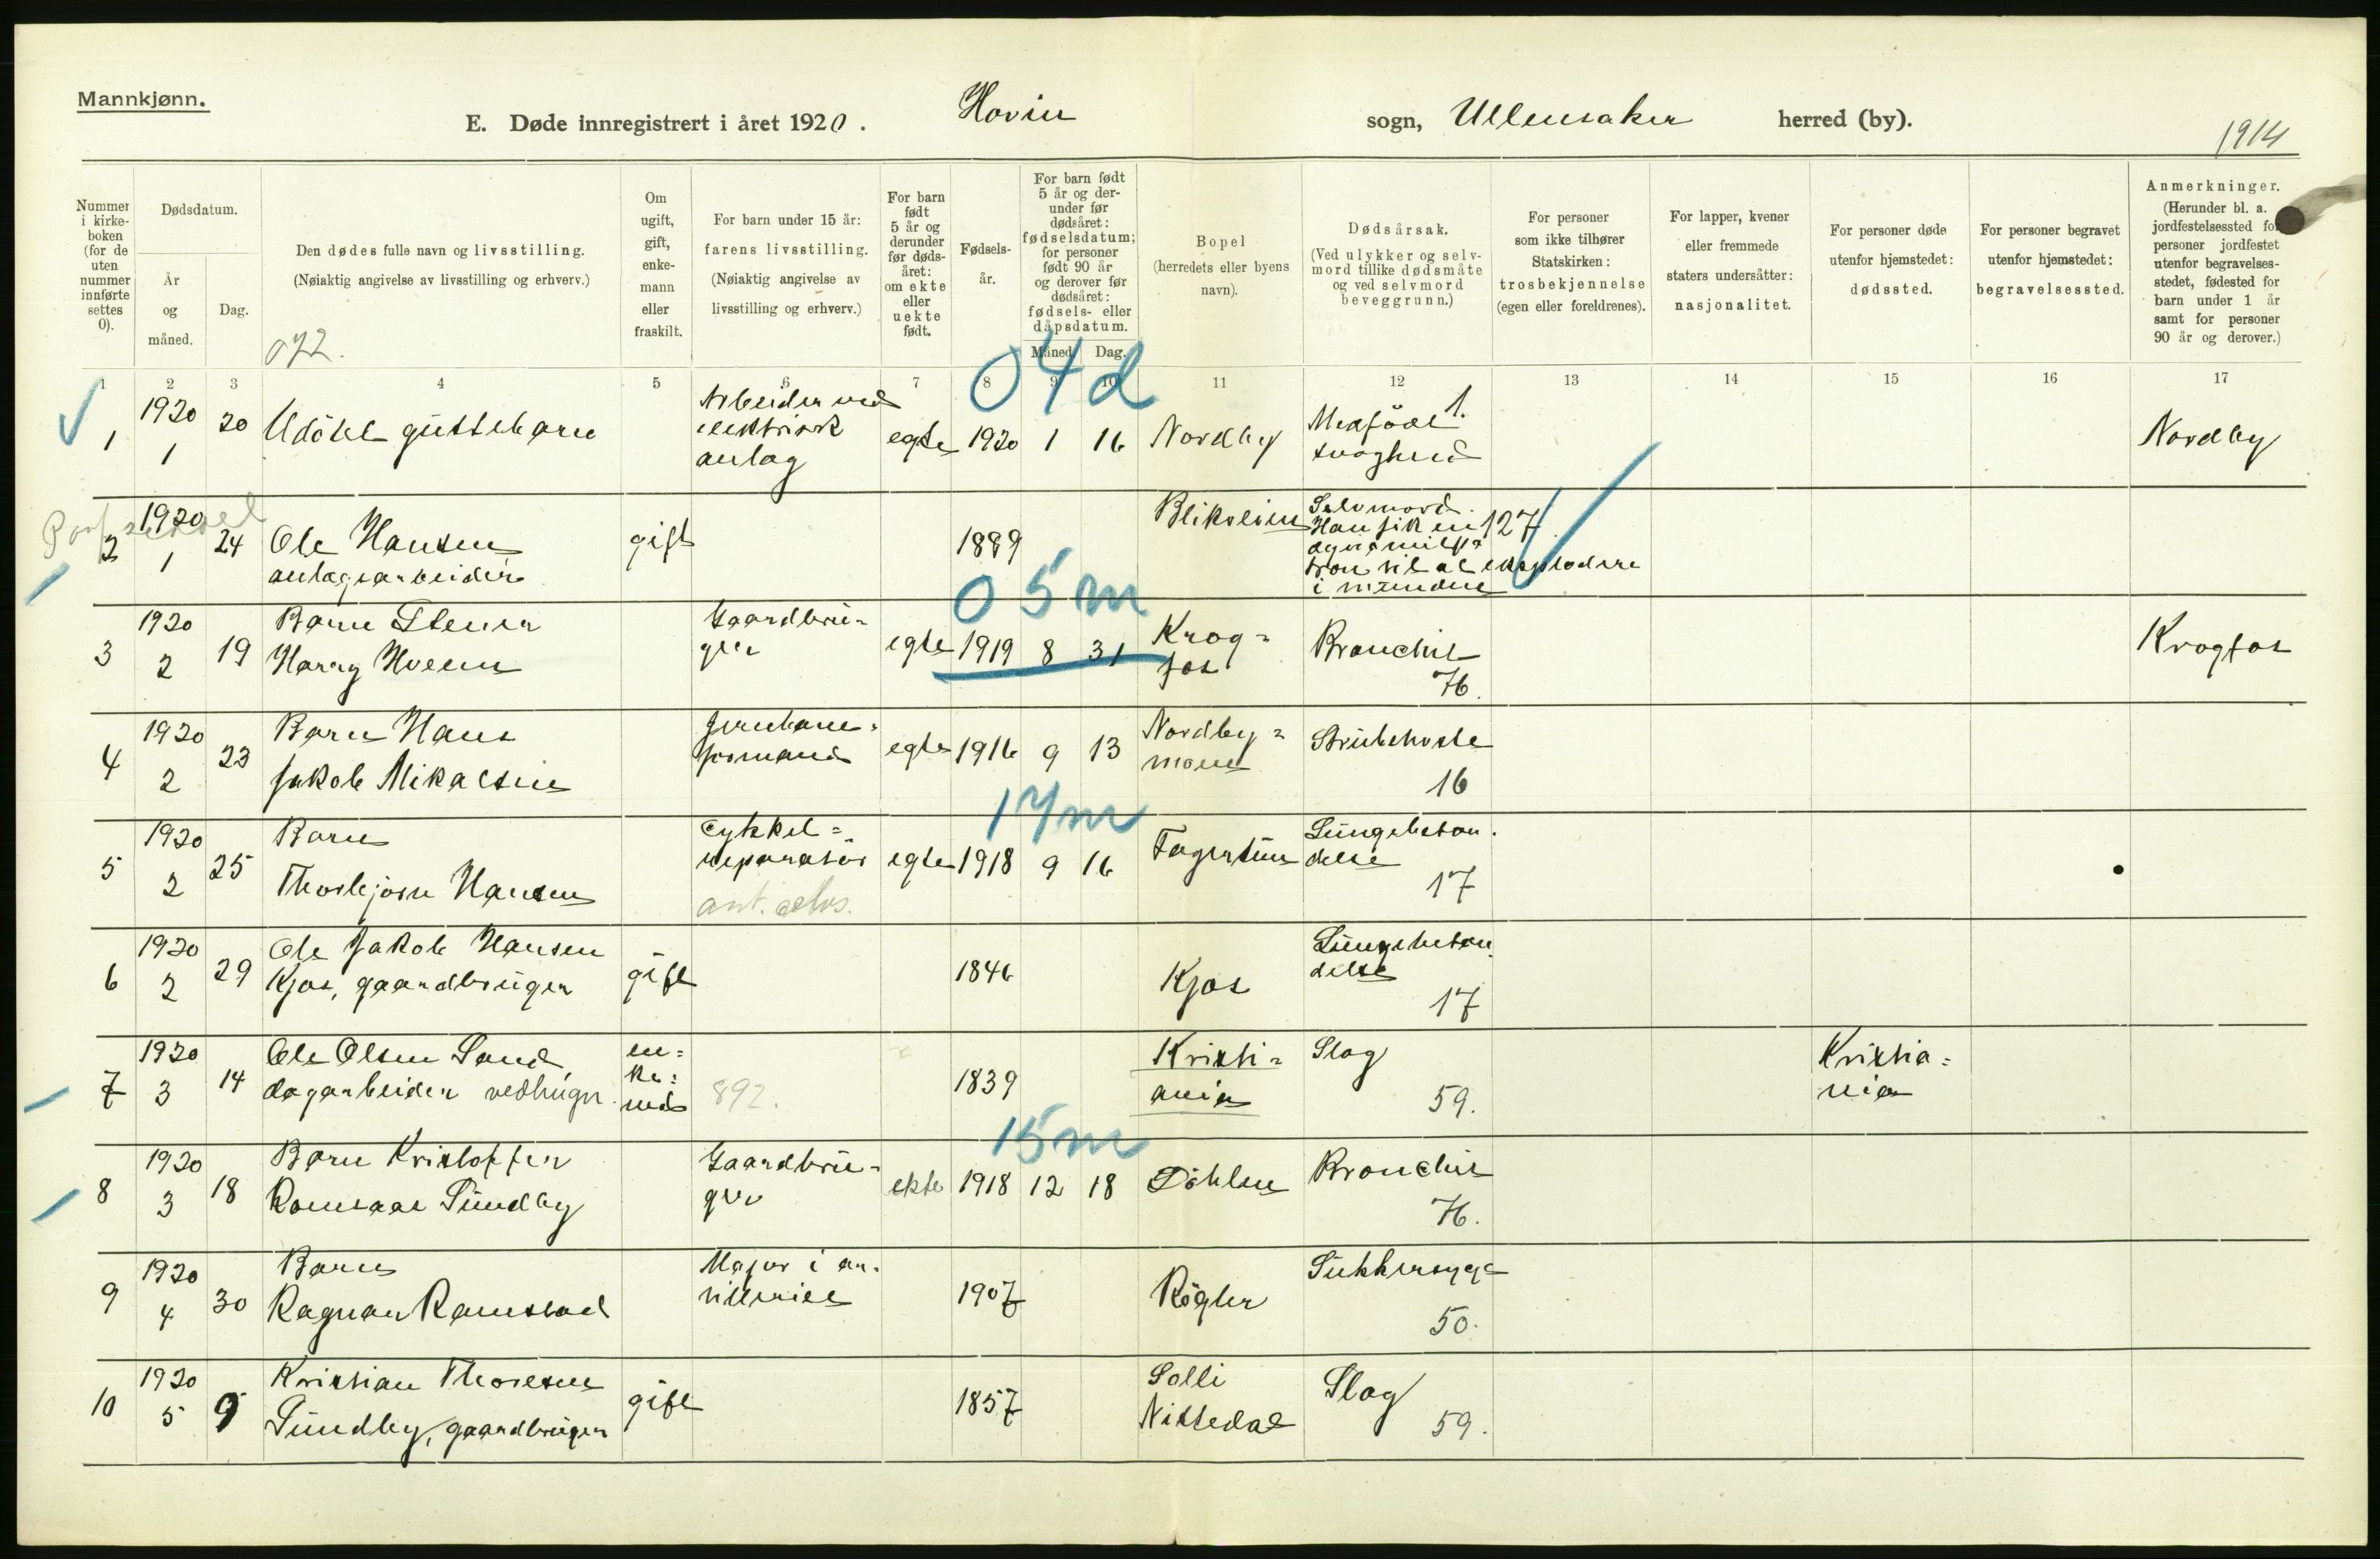 Mannkjønn.
E. Døde innregistrert i året 1920. Hovin sogn, Ullensaker herred (by).
1914
Nummer i kirke-boken (for de uten nummer innførte settes 0).
Dødsdatum.
År og måned.
Dag.
Den dødes fulle navn og livsstilling.
(Nøiaktig angivelse av livsstilling og erhverv.)
072.
Om ugift, gift, enke-mann eller fraskilt.
For barn under 15 år:
farens livsstilling.
(Nøiaktig angivelse av livsstilling og erhverv.)
For barn født 5 år og derunder før døds-året: om ekte eller uekte født.
Fødsels-år.
For barn født 5 år og der-under før dødsåret: fødselsdatum; for personer født 90 år og derover før dødsåret: fødsels- eller dåpsdatum.
Måned. Dag.
Bopel
(herredets eller byens navn).
Dødsårsak.
(Ved ulykker og selv-mord tillike dødsmåte og ved selvmord beveggrunn.)
For personer som ikke tilhører Statskirken: trosbekjennelse (egen eller foreldrenes).
For lapper, kvener eller fremmede staters undersåtter: nasjonalitet.
For personer døde utenfor hjemstedet: dødssted.
For personer begravet utenfor hjemstedet: begravelsessted.
Anmerkninger.
(Herunder bl. a. jordfestelsessted for personer jordfestet utenfor begravelses-stedet, fødested for barn under 1 år samt for personer 90 år og derover.)
1 2 3 4 5 6 7 8 9 10 11 12 13 14 15 16 17
04d
1 1920 1 20 Udöbt guttebarn Arbeider ved elektrisk anlæg egte 1920 1 16 Nordby Medfödt svaghed 1. Nordby
2 1920 1 24 Ole Hansen anlægsarbeider gift 1889 Selvmord. Han fik en 127 til at eksplodere i munden
05m
3 1920 2 19 Barn Stener Harry Hveem Gaardbru-ger egte 1919 8 31 Krog-fos Bronchit 76. Krogfos
4 1920 2 23 Barn Hans Jakob Mikalsen Jernbane-formand egte 1916 9 13 Nordby-moen Strubehoste 16
17m
5 1920 2 25 Barn Thorbjørn Hansen Cykkel-reparatör egte 1918 9 16 Fagertun Lungebetæn-delse 17
6 1920 2 29 Ole Jakob Hansen Kjos, gaardbruger gift 1846 Kjos Lungebetæn-delse 17
7 1920 3 14 Ole Olsen Sand, dagarbeider vedhugr. en-ke-md 892. 1839 Kristi-ania Slag 59. Kristia-nia
15m
8 1920 3 18 Barn Kristoffer Romsaas Sundby Gaardbru-ger ekte 1918 12 18 Döhlen Bronchit 76.
9 1920 4 30 Barn Ragnar Ramstad Major i ar-tilleriet 1907 Rögler Sukkersyge 50.
10 1920 5 9 Kristian Thoresen Sundby, gaardbruger gift 1857 Solli Nittedal Slag 59.